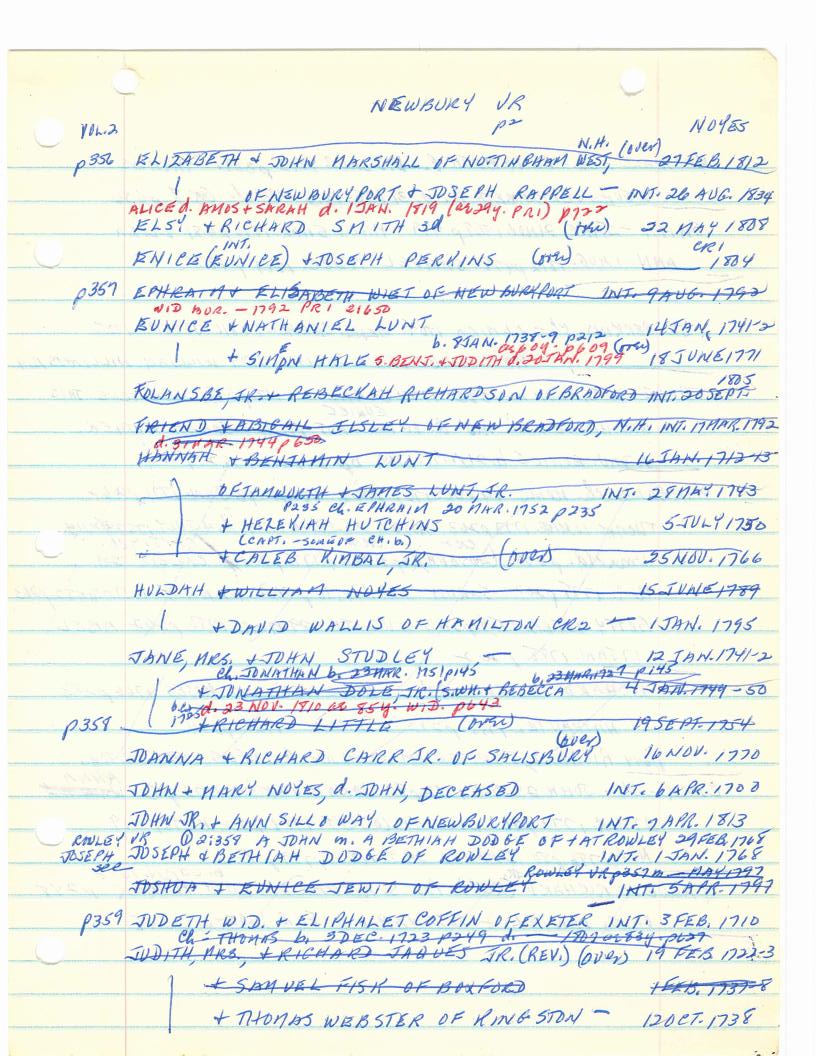 NEWBURY VR
p2
VOL.2 NOYES
N.H. (over)
p356 ELIZABETH + JOHN MARSHALL OF NOTTINGHAM WEST, 27 FEB. 1812
OF NEWBURYPORT + JOSEPH RAPPELL — INT. 26 AUG. 1834
ALICE d. AMOS + SARAH d. 1 JAN. 1819 (ae 29y. PR1) p722
ELSY + RICHARD SMITH 3d (over) 22 MAY 1808
INT. CR1
ENICE (EUNICE) + JOSEPH PERKINS (over) ____ 1804
p357 EPHRAIM + ELIZABETH WIET OF NEWBURYPORT INT. 9 AUG. 1792
WID BUR. — 1792 PR1
EUNICE + NATHANIEL LUNT 14 JAN. 1741-2
b. 8 JAN. 1738-9 p212
as 60y. p609 (over)
+ SIMEON HALE S. BENJ. + JUDITH d. 20 JAN. 1799 18 JUNE 1771
1805
FOLANSBE, JR. + REBECKAH RICHARDSON OF BRADFORD INT. 20 SEPT.
FRIEND + ABIGAIL ILSLEY OF NEW BRADFORD, N.H. INT. 17 MAR. 1792
d. 31 MAR. 1744 p650
HANNAH + BENJAMIN LUNT 16 JAN. 1712-13
OF TAMWORTH + JAMES LUNT, JR. INT. 28 MAY 1743
p235 ch. EPHRAIM 20 MAR. 1752 p235
+ HEZEKIAH HUTCHINS 5 JULY 1750
+ CALEB KIMBAL, JR. (over) 25 NOV. 1766
HULDAH + WILLIAM NOYES 15 JUNE 1789
+ DAVID WALLIS OF HAMILTON CR2 — 1 JAN. 1795
JANE, MRS. + JOHN STUDLEY — 12 JAN. 1741-2
Ch. JONATHAN b. 23 MAR. 1751 p145 b. 23 MAR. 1727 p145
+ JONATHAN DOLE, JR. (S. WM. + REBECCA 4 JAN. 1749-50
d. 23 NOV. 1810 ae 85y. WID. p642
p358 + RICHARD LITTLE (over) 19 SEPT. 1754
(over)
JOANNA + RICHARD CARR JR. OF SALISBURY 16 NOV. 1770
JOHN + MARY NOYES, d. JOHN, DECEASED INT. 6 APR. 1700
JOHN JR. + ANN SILLOWAY OF NEWBURYPORT INT. 7 APR. 1813
ROWLEY VR @ 2:359 A JOHN m. A BETHIAH DODGE OF + AT ROWLEY 29 FEB. 1768
JOSEPH JOSEPH + BETHIAH DODGE OF ROWLEY INT. 1 JAN. 1768
see ROWLEY VR p357 m — MAY 1797
JOSHUA + EUNICE JEWIT OF ROWLEY INT. 5 APR. 1797
p359 JUDETH WID. + ELIPHALET COFFIN OF EXETER INT. 3 FEB. 1710
Ch — THOMAS b. 3 DEC. 1723 p249 d. — 1807 ae 83y. p627
JUDITH, MRS. + RICHARD JAQUES JR. (REV.) (over) 19 FEB. 1722-3
+ SAMUEL FISK OF BOXFORD 1 FEB. 1737-8
+ THOMAS WEBSTER OF KINGSTON — 12 OCT. 1738